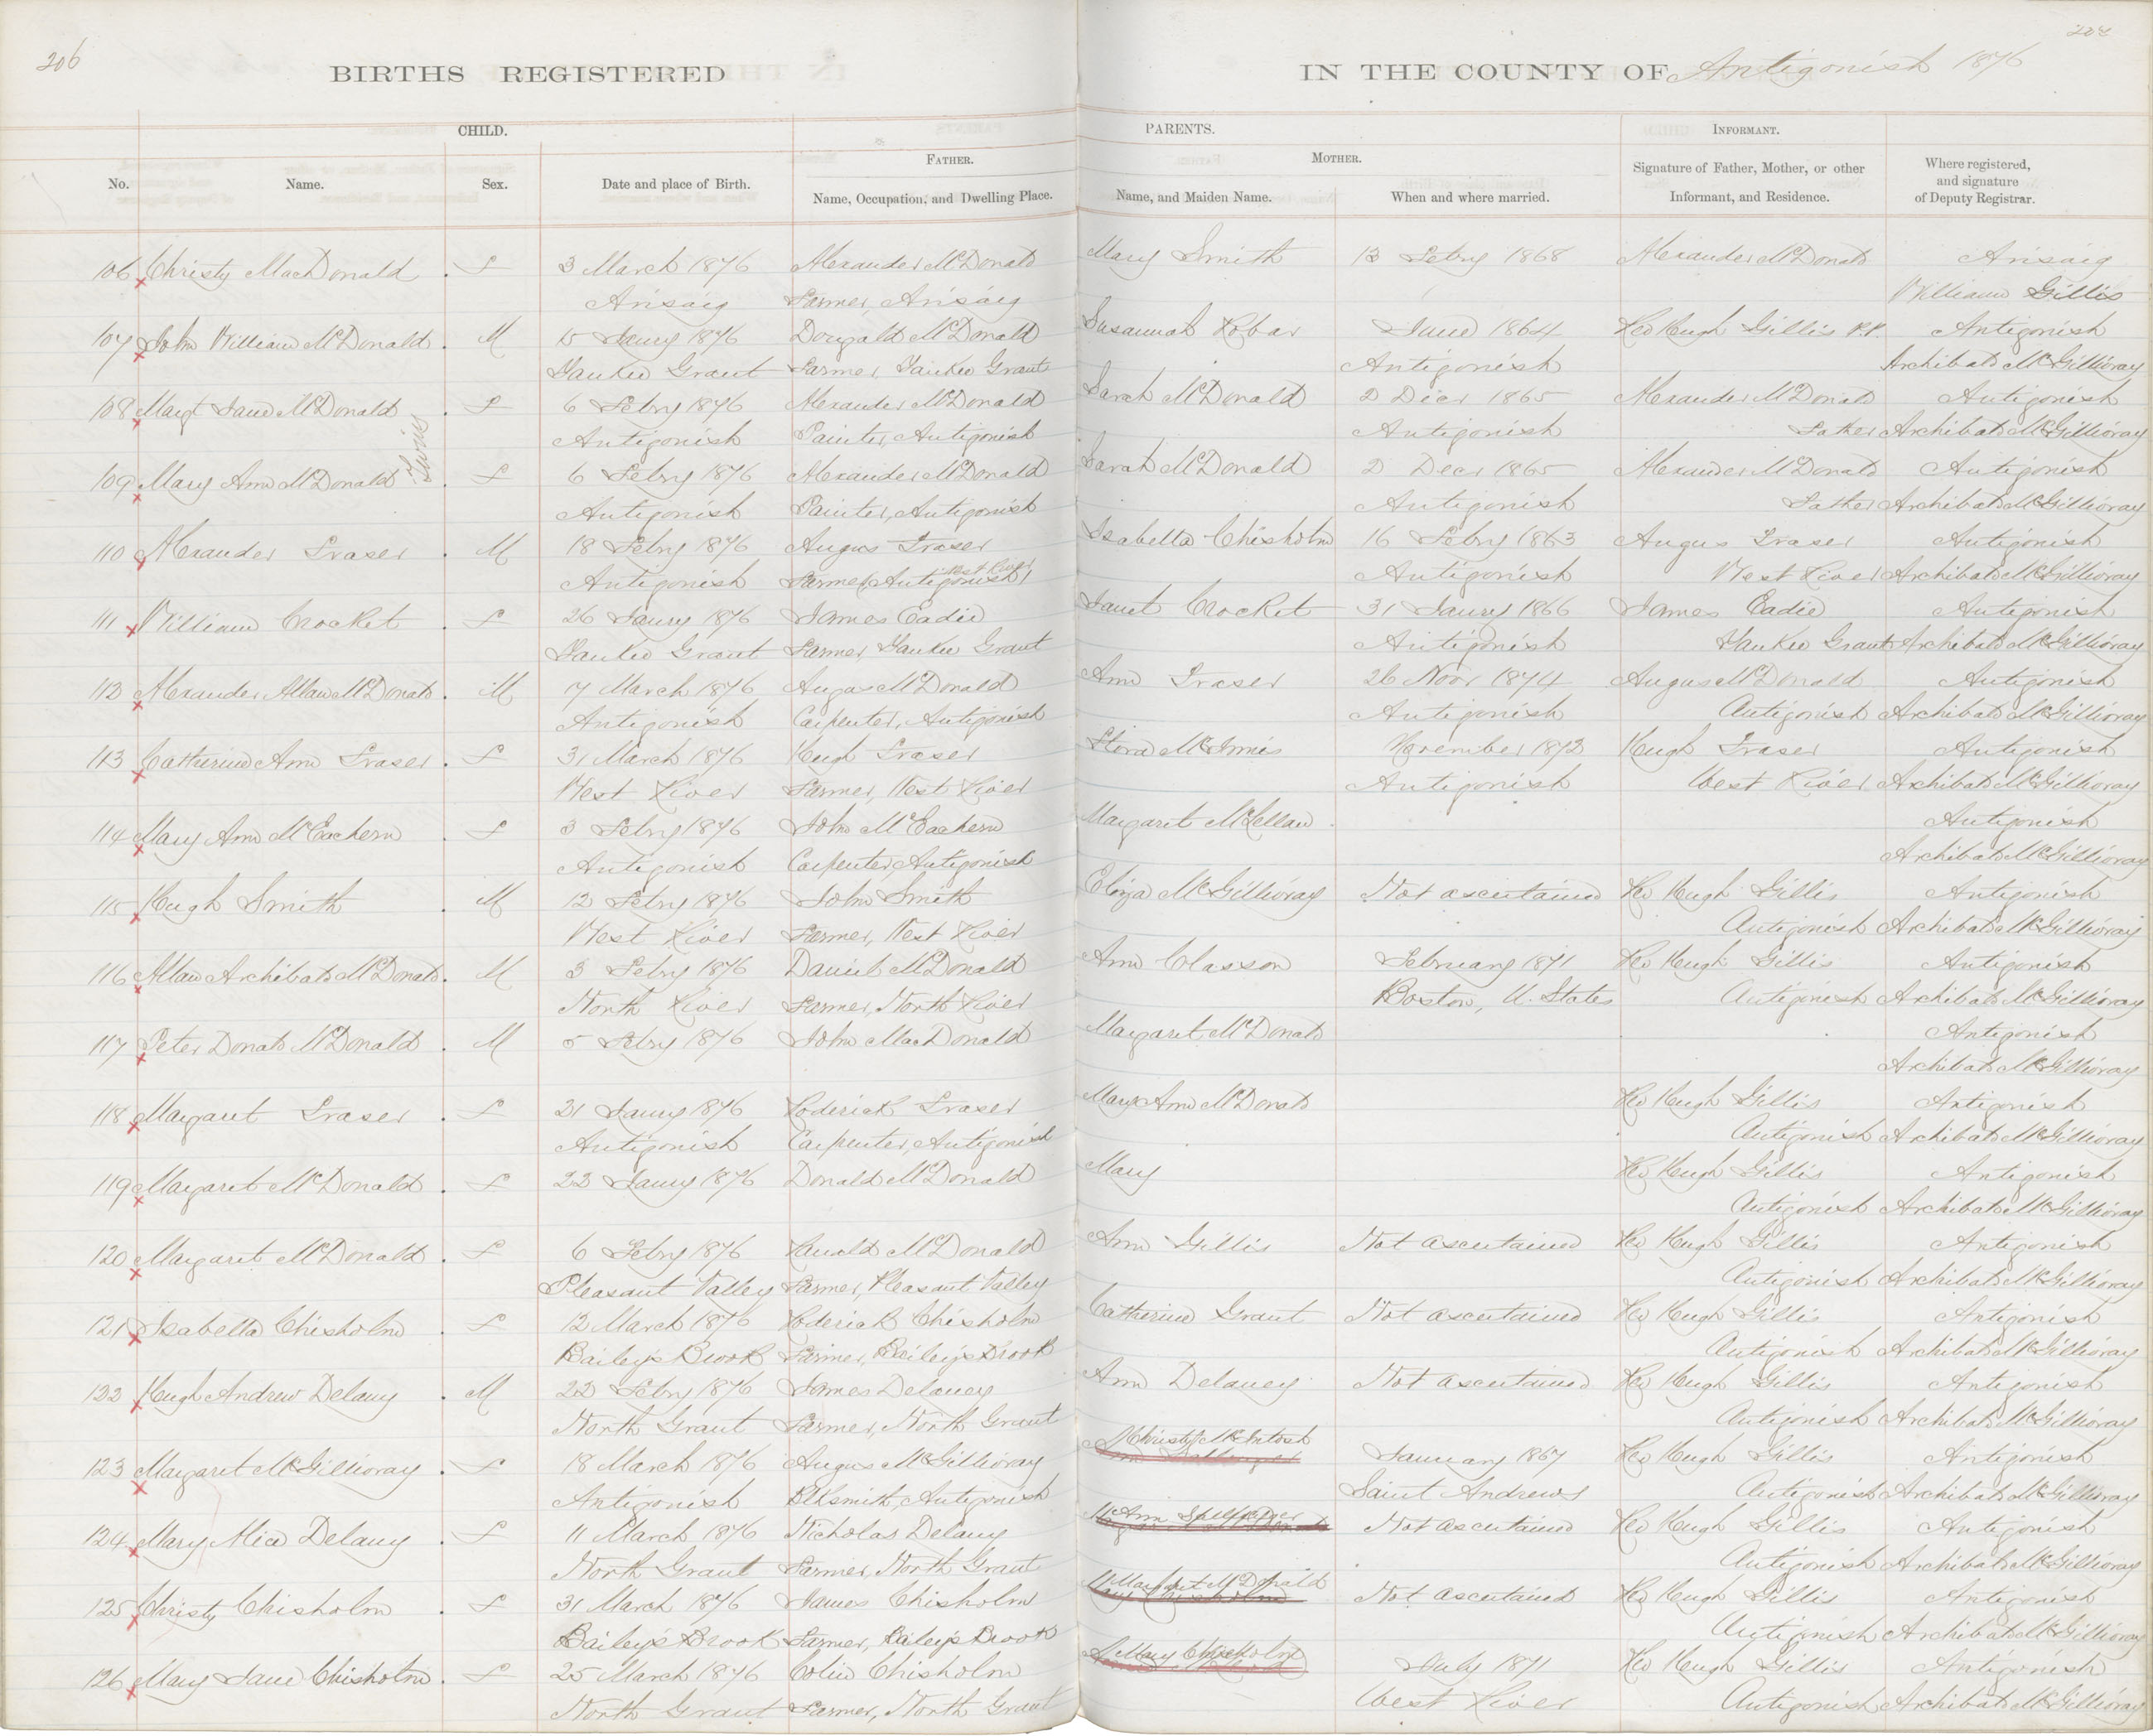 206
204
BIRTHS REGISTERED
IN THE COUNTY OF Antigonish 1876
CHILD.
PARENTS.
INFORMANT.
FATHER.
MOTHER.
No.
Name.
Sex.
Date and place of Birth.
Name, Occupation, and Dwelling Place.
Name, and Maiden Name.
When and where married.
Signature of Father, Mother, or other
Informant, and Residence.
Where registered,
and signature
of Deputy Registrar.
106 Christy MacDonald . F 3 March 1876 Alexander McDonald Mary Smith 13 Febry 1868 Alexander McDonald Arisaig
Arisaig Farmer, Arisaig William Gillis
107 John William McDonald . M 15 Jaury 1876 Dougald McDonald Susannah Robar June 1864 Rev Hugh Gillis P.P. Antigonish
Yankee Grant Farmer, Yankee Grant Antigonish Archibald McGillivray
108 Margt Jane McDonald . F 6 Febry 1876 Alexander McDonald Sarah McDonald 2 Decr 1865 Alexander McDonald Antigonish
Twins
Antigonish Painter, Antigonish Antigonish Father Archibald McGillivray
109 Mary Ann McDonald . F 6 Febry 1876 Alexander McDonald Sarah McDonald 2 Decr 1865 Alexander McDonald Antigonish
Antigonish Painter, Antigonish Antigonish Father Archibald McGillivray
110 Alexander Fraser . M 18 Febry 1876 Angus Fraser Isabella Chisholm 16 Febry 1863 Angus Fraser Antigonish
Antigonish Farmer, Antigonish West River Antigonish West River Archibald McGillivray
111 William Crocket . F 26 Jaury 1876 James Eadie Janet Crocket 31 Jaury 1866 James Eadie Antigonish
Yankee Grant Farmer, Yankee Grant Antigonish Yankee Grant Archibald McGillivray
112 Alexander Allan McDonald . M 7 March 1876 Angus McDonald Ann Fraser 26 Novr 1874 Angus McDonald Antigonish
Antigonish Carpenter, Antigonish Antigonish Antigonish Archibald McGillivray
113 Catherine Ann Fraser . F 31 March 1876 Hugh Fraser Flora McInnis November 1872 Hugh Fraser Antigonish
West River Farmer, West River Antigonish West River Archibald McGillivray
114 Mary Ann McEachern . F 3 Febry 1876 John McEachern Margaret McLellan Antigonish
Antigonish Carpenter, Antigonish Archibald McGillivray
115 Hugh Smith . M 12 Febry 1876 John Smith Eliza McGillivray Not ascertained Rev Hugh Gillis Antigonish
West River Farmer, West River Antigonish Archibald McGillivray
116 Allan Archibald McDonald . M 3 Febry 1876 Daniel McDonald Ann Classon February 1871 Rev Hugh Gillis Antigonish
North River Farmer, North River Boston, U. States Antigonish Archibald McGillivray
117 Peter Donald McDonald . M 5 Febry 1876 John MacDonald Margaret McDonald Antigonish
Archibald McGillivray
118 Margaret Fraser . F 21 Jaury 1876 Roderick Fraser Mary Ann McDonald Rev Hugh Gillis Antigonish
Antigonish Carpenter, Antigonish Antigonish Archibald McGillivray
119 Margaret McDonald . F 22 Jaury 1876 Donald McDonald Mary Rev Hugh Gillis Antigonish
Antigonish Archibald McGillivray
120 Margaret McDonald . F 6 Febry 1876 Ranald McDonald Ann Gillis Not ascertained Rev Hugh Gillis Antigonish
Pleasant Valley Farmer, Pleasant Valley Antigonish Archibald McGillivray
121 Isabella Chisholm . F 12 March 1876 Roderick Chisholm Catherine Grant Not ascertained Rev Hugh Gillis Antigonish
Bailey's Brook Farmer, Bailey's Brook Antigonish Archibald McGillivray
122 Hugh Andrew Delany . M 22 Febry 1876 James Delaney Ann Delaney Not ascertained Rev Hugh Gillis Antigonish
North Grant Farmer, North Grant Antigonish Archibald McGillivray
123 Margaret McGillivray . F 18 March 1876 Angus McGillivray Christy McIntosh January 1867 Rev Hugh Gillis Antigonish
Antigonish Blksmith, Antigonish Saint Andrews Antigonish Archibald McGillivray
124 Mary Alice Delany . F 11 March 1876 Nicholas Delany Ann Not ascertained Rev Hugh Gillis Antigonish
North Grant Farmer, North Grant Antigonish Archibald McGillivray
125 Christy Chisholm . F 31 March 1876 James Chisholm Margaret McDonald Not ascertained Rev Hugh Gillis Antigonish
Bailey's Brook Farmer, Bailey's Brook Antigonish Archibald McGillivray
126 Mary Jane Chisholm . F 25 March 1876 Colin Chisholm Mary Chisholm July 1871 Rev Hugh Gillis Antigonish
North Grant Farmer, North Grant West River Antigonish Archibald McGillivray